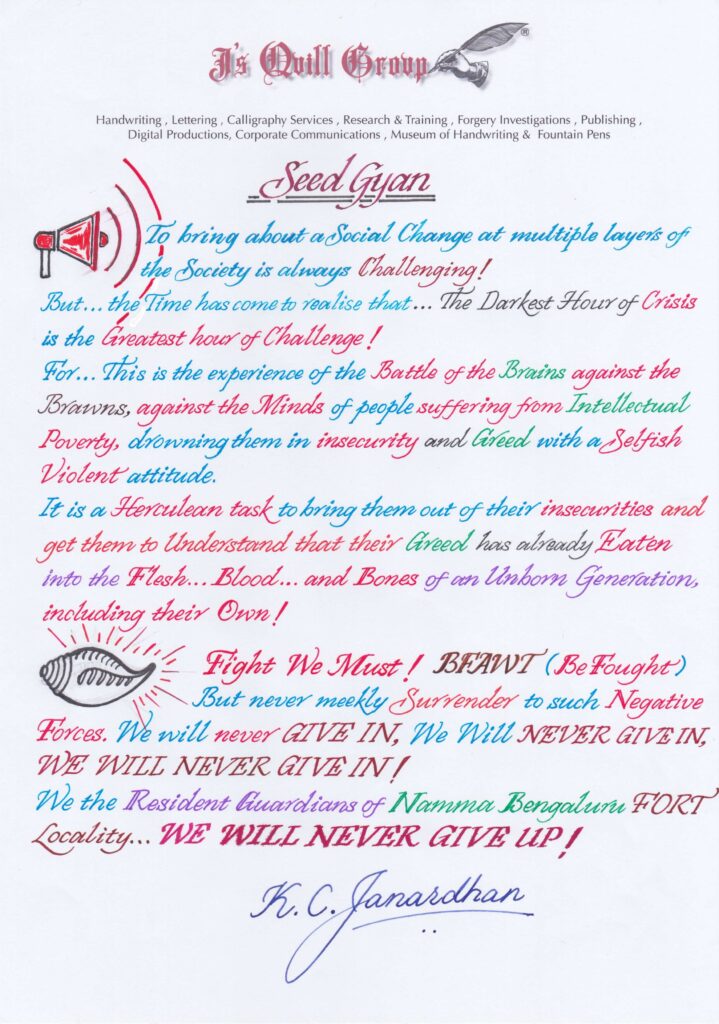 J's Quill Group ®
Handwriting , Lettering , Calligraphy Services , Research & Training , Forgery Investigations , Publishing ,
Digital Productions, Corporate Communications , Museum of Handwriting & Fountain Pens
Seed Gyan
To bring about a Social Change at multiple layers of
the Society is always Challenging!
But... the Time has come to realise that... The Darkest Hour of Crisis
is the Greatest hour of Challenge!
For... This is the experience of the Battle of the Brains against the
Brawns, against the Minds of people suffering from Intellectual
Poverty, drowning them in insecurity and Greed with a Selfish
Violent attitude.
It is a Herculean task to bring them out of their insecurities and
get them to Understand that their Greed has already Eaten
into the Flesh... Blood... and Bones of an Unborn Generation,
including their Own!
Fight We Must! BFAWT (Be Fought)
But never meekly Surrender to such Negative
Forces. We will never GIVE IN, We Will NEVER GIVE IN,
WE WILL NEVER GIVE IN!
We the Resident Guardians of Namma Bengaluru FORT
Locality... WE WILL NEVER GIVE UP!
K. C. Janardhan